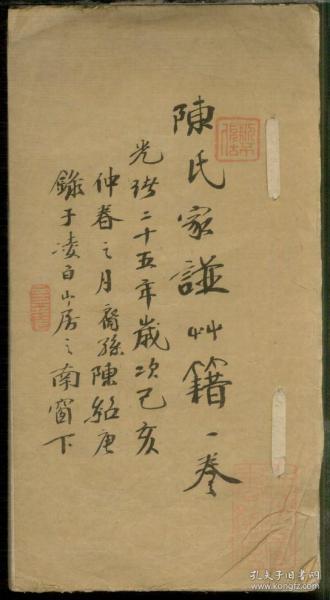 陳氏家譜艸籍一卷
光緒二十五年歲次己亥
仲春之月裔孫陳紹唐
錄于凌白山居之南窗下
孔夫子旧书网